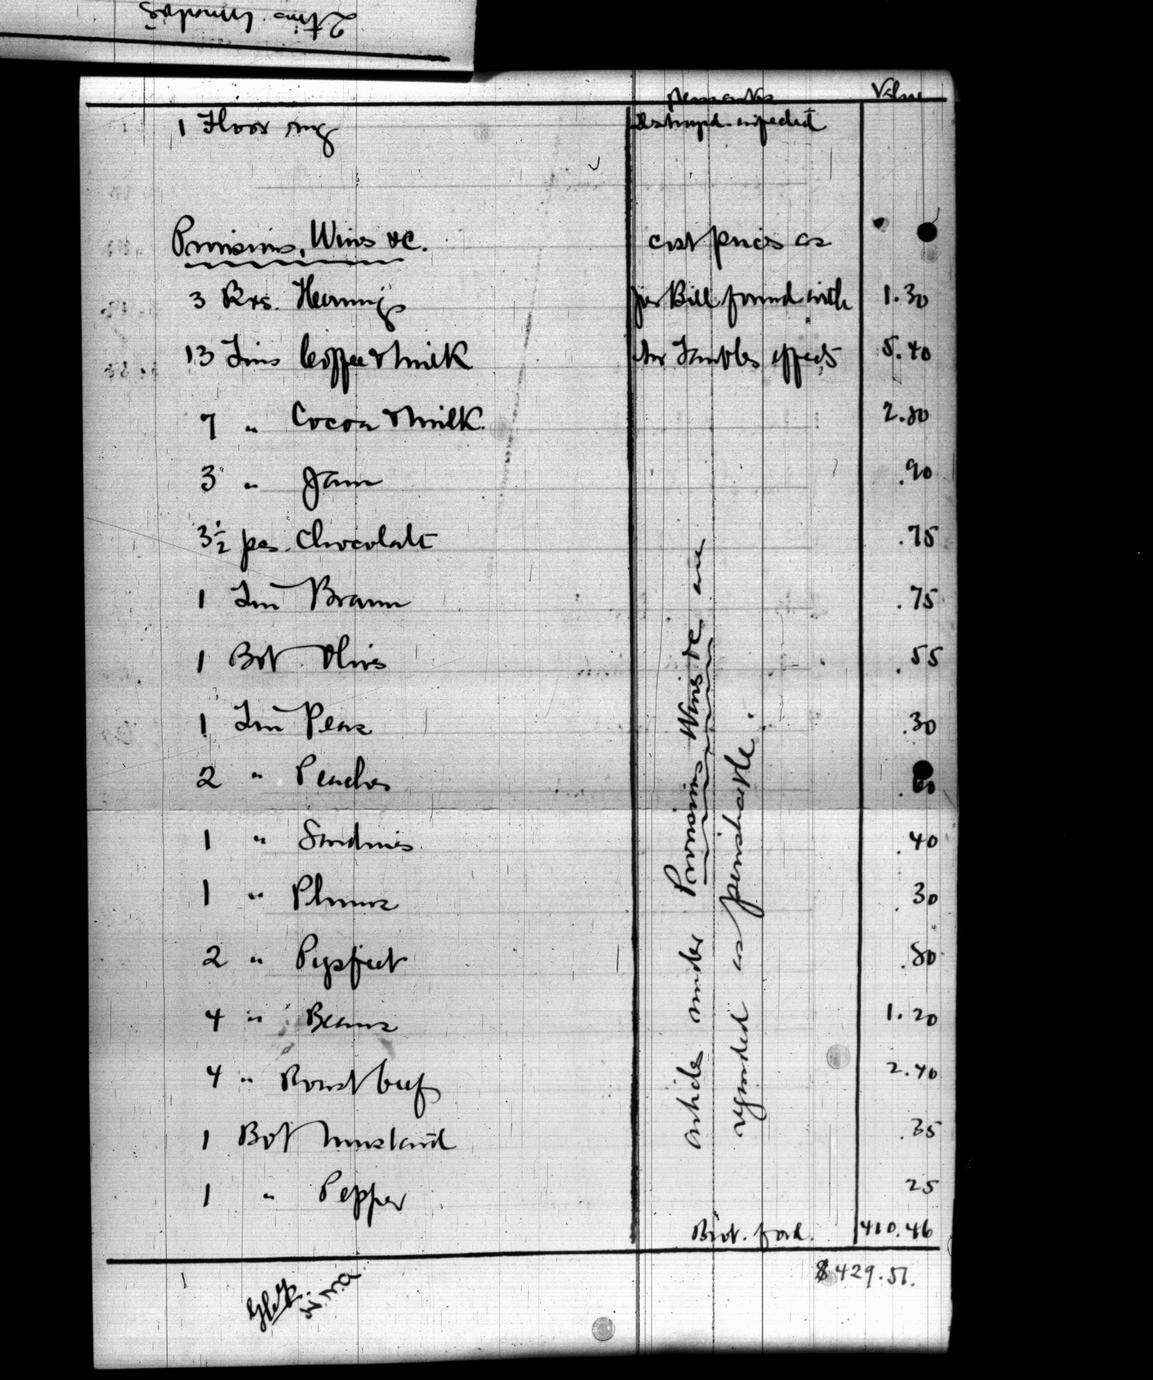 2 tins Tomatoes
Remarks Value
1 Floor rug destroyed infected
Provisions, Wines &c. cost prices as
3 Bxs. Herrings per Bill found with 1.30
13 Tins Coffee & milk Mr effects 5.40
7 " Cocoa & milk 2.80
3 " Jam .90
3½ pcs. Chocolate .75
1 Tin Brawn .75
1 Bot Olives .55
1 Tin Pears .30
2 " Peaches .60
1 " Sardines .40
1 " Plums .30
2 " Pigsfeet .80
4 " Beans 1.20
4 " Roast beef 2.40
1 Bot Mustard .35
1 " Pepper 25
Brot. ford. 410.46
$429.51.
articles under Provisions Wines &c are
regarded as perishable.